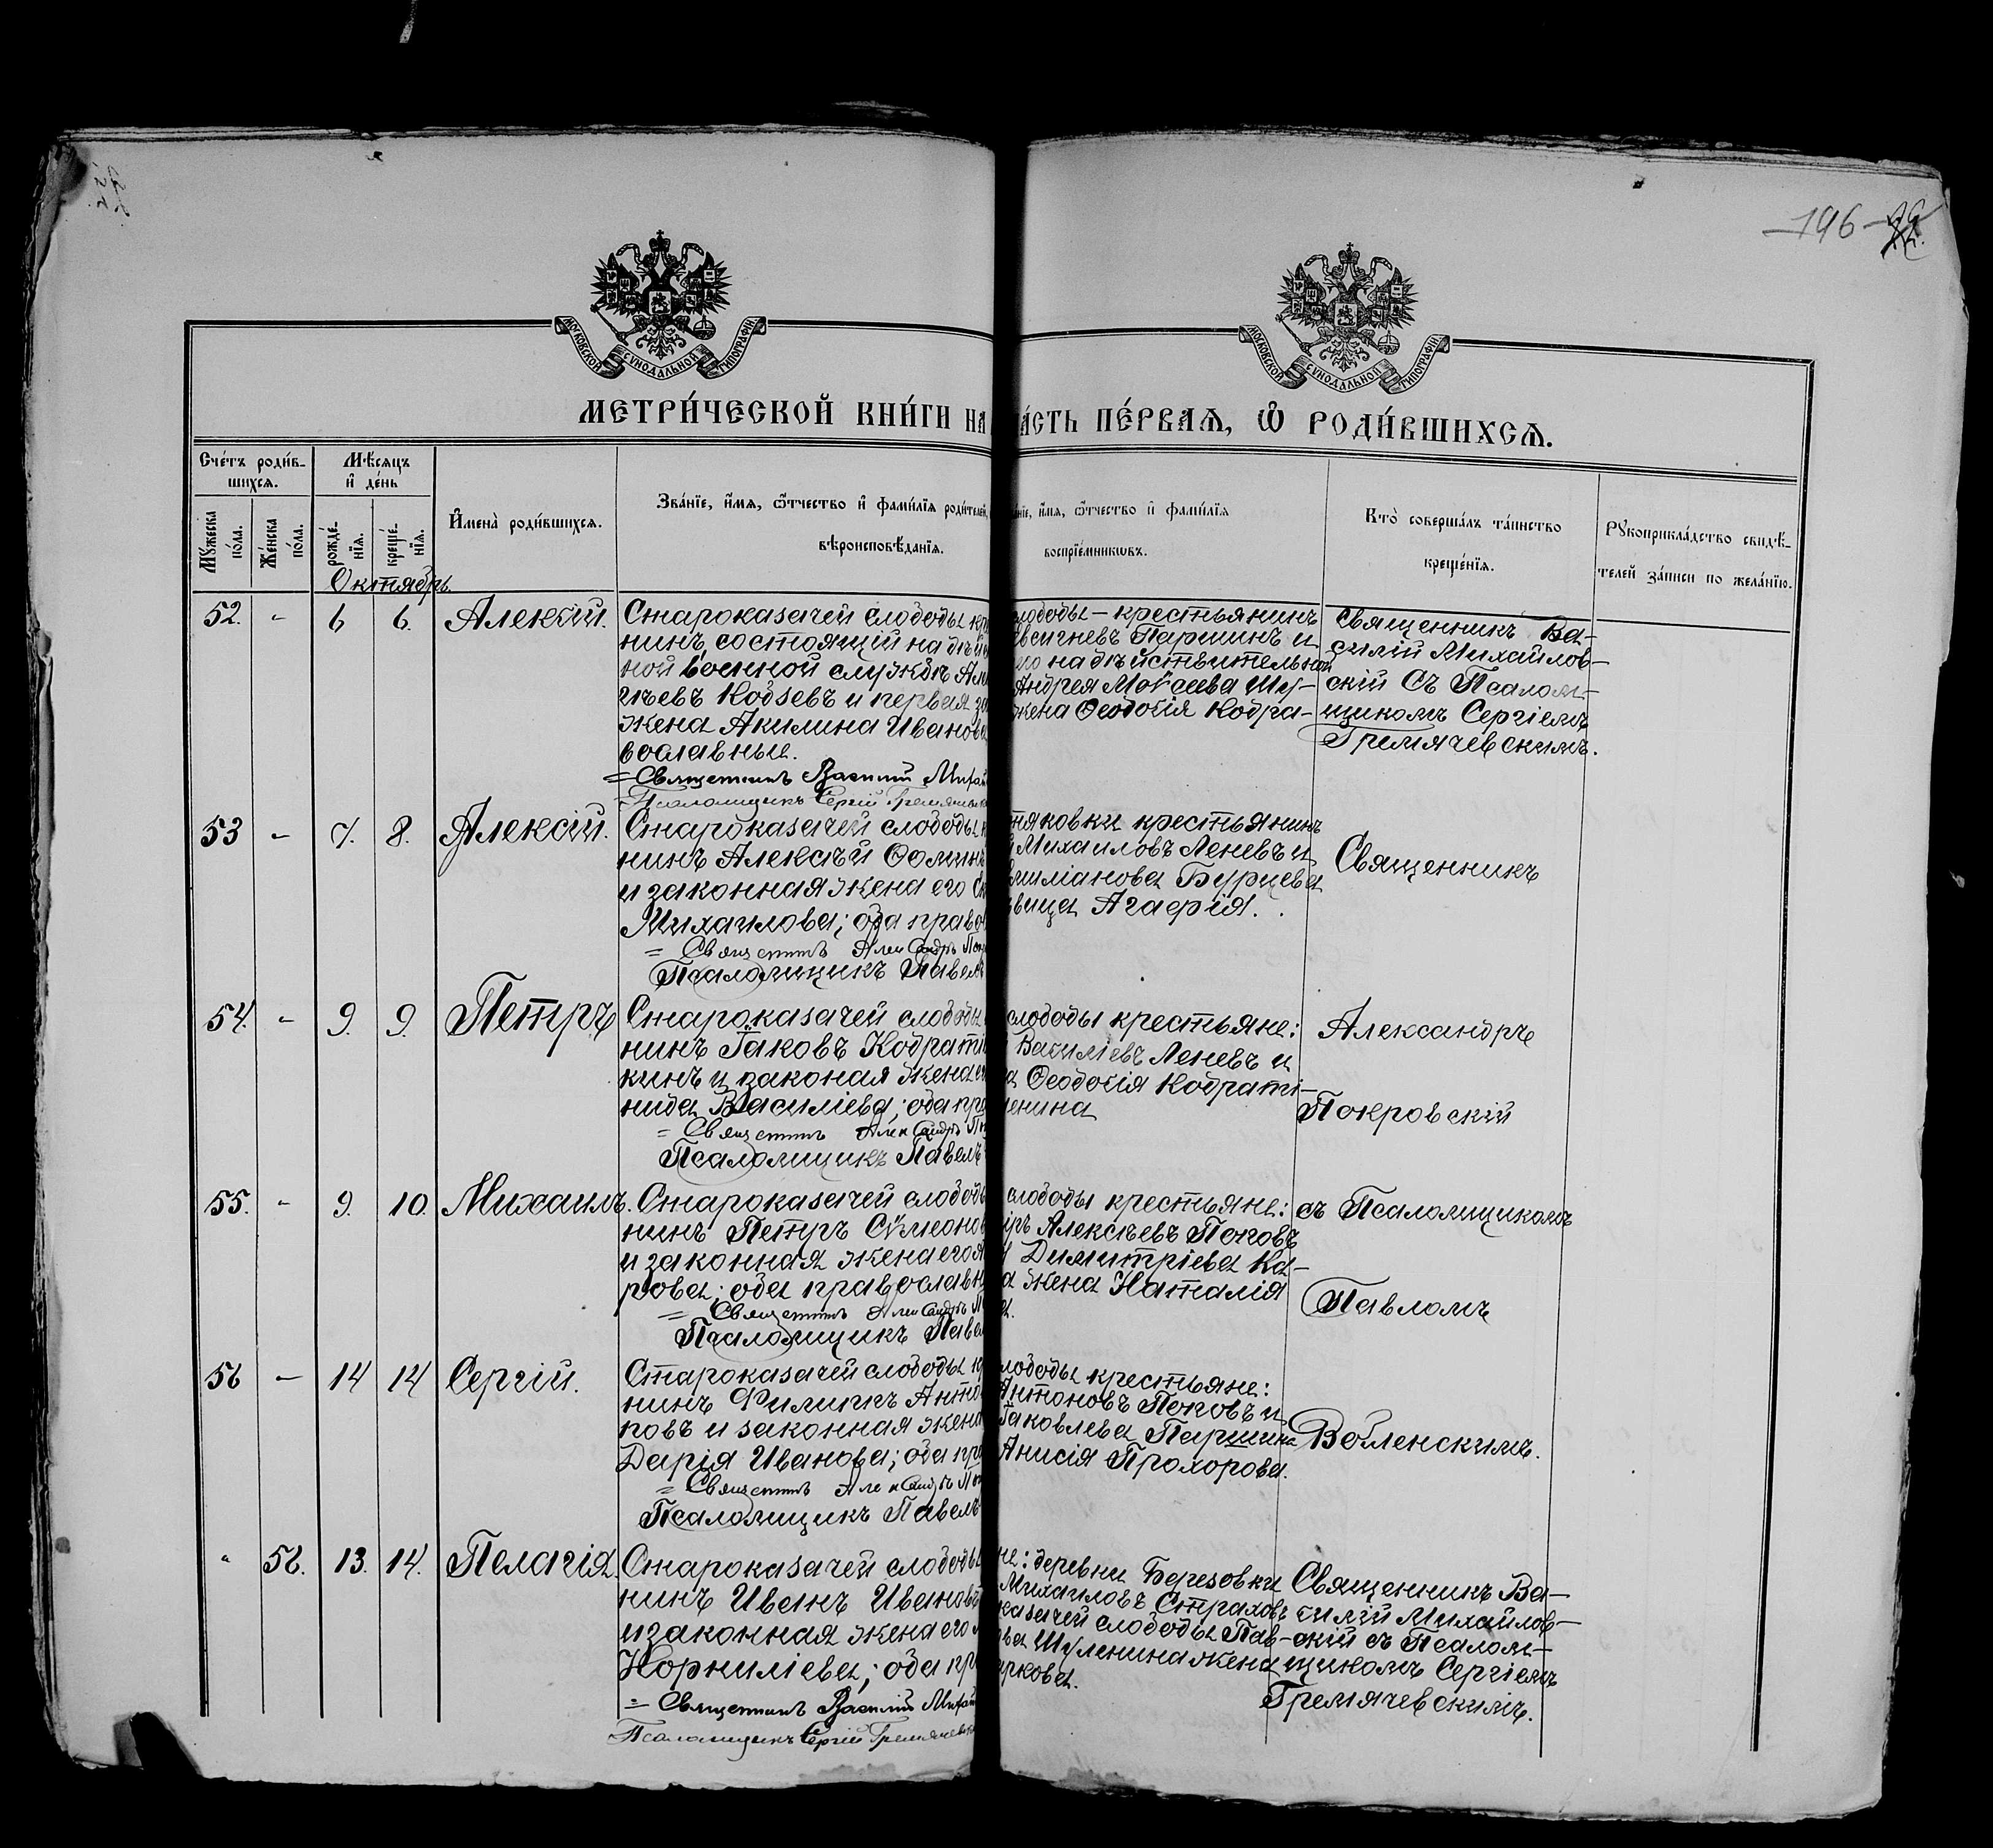 196
МОСКОВСКОЙ СѴНОДАЛЬНОЙ ТИПОГРАФІИ
МОСКОВСКОЙ СѴНОДАЛЬНОЙ ТИПОГРАФІИ
МЕТРИ́ЧЕСКОЙ КНИ́ГИ НА
А́СТЬ ПЕ́РВАѦ, Ѽ РОДИ́ВШИХСѦ.
Сче́тъ роди́в-
шихсѧ.
Мѣ́сѧцъ
и҆ де́нь
Мꙋ́жеска
по́ла.
Же́нска
по́ла.
рожде́-
нїѧ.
креще́-
нїѧ.
И҆мена̀ роди́вшихсѧ.
Зва́нїе, и҆́мѧ, ѻ҆́тчество и҆ фами́лїѧ роди́телей,
вѣроисповѣ́данїѧ.
нїе, и҆́мѧ, ѻ҆́тчество и҆ фами́лїѧ
воспрїе́мникѡвъ.
Кто̀ соверша́лъ та́инство
креще́нїѧ.
Рꙋкоприкла́дство свидѣ́-
телей за́писи по жела́нїю.
Октябрь.
52. " 6 6. Алексій.
Староказачей слободы кр
нинъ, состоящій на дѣй
ной военной службѣ Але
гѣевъ Кобзевъ и первая за
жена Акилина Иванова
вославные.
= Священникъ Василій Михай
Псаломщикъ Сергій Гремячевск
слободы - крестьянинъ
Евсигневъ Паршинъ и
го на дѣйствительной
Андрея Моѵсеева Шу-
жена Ѳеодосія Кодра-
Священникъ Ва-
силій Михайлов-
скій съ Псалом-
щикомъ Сергіемъ
Гремячевскимъ.
53 " 7. 8. Алексій.
Староказачей слободы к
нинъ Алексѣй Ѳомин
и законная жена его
Михаилова; оба право
= Священникъ Александръ Пок
Псаломщикъ Павелъ
няковки крестьянинъ
Михаиловъ Леневъ и
миліанова Бурцева
вица Агаѳія.
Священникъ
54. " 9. 9. Петръ
Староказачей слободы
нинъ Іаковъ Кодраті
кинъ и законая жена е
нида Василіева; оба пра
= Священникъ Александръ По
Псаломщикъ Павелъ
слободы крестьяне:
Василіевъ Леневъ и
а Ѳеодосія Кодраті-
ленина
Александръ
Покровскій
55. " 9. 10. Михаилъ.
Староказачей слободы
нинъ Петръ Сѵмеонов
и законная жена его
рова; оба православн
= Священникъ Александръ П
Псаломщикъ Павел
слободы крестьяне:
Алексѣевъ Поповъ
Димитріева Ка-
а жена Наталія
съ Псаломщикомъ
Павломъ
56 - 14 14 Сергій.
Староказачей слободы кр
нинъ Филиппъ Анто
повъ и законная жена
Дарія Иванова; оба пра
= Священникъ Александръ По
Псаломщикъ Павелъ
лободы крестьяне:
Антоновъ Поповъ и
Іаковлева Паршина
Анисія Прохорова.
Воленскимъ.
" 56. 13. 14. Пелагія.
Староказачей слободы
нинъ Иванъ Ивановъ
и законная жена его
Корниліева; оба пр
= Священникъ Василій Михай
Псаломщикъ Сергій Гремячевск
не: деревни Березовки
Михаиловъ Страховъ
казачей слободы Пав-
ва Шуленина жена
аркова.
Священникъ Ва-
силій Михайлов-
скій съ Псалом-
щикомъ Сергіемъ
Гремячевскимъ.